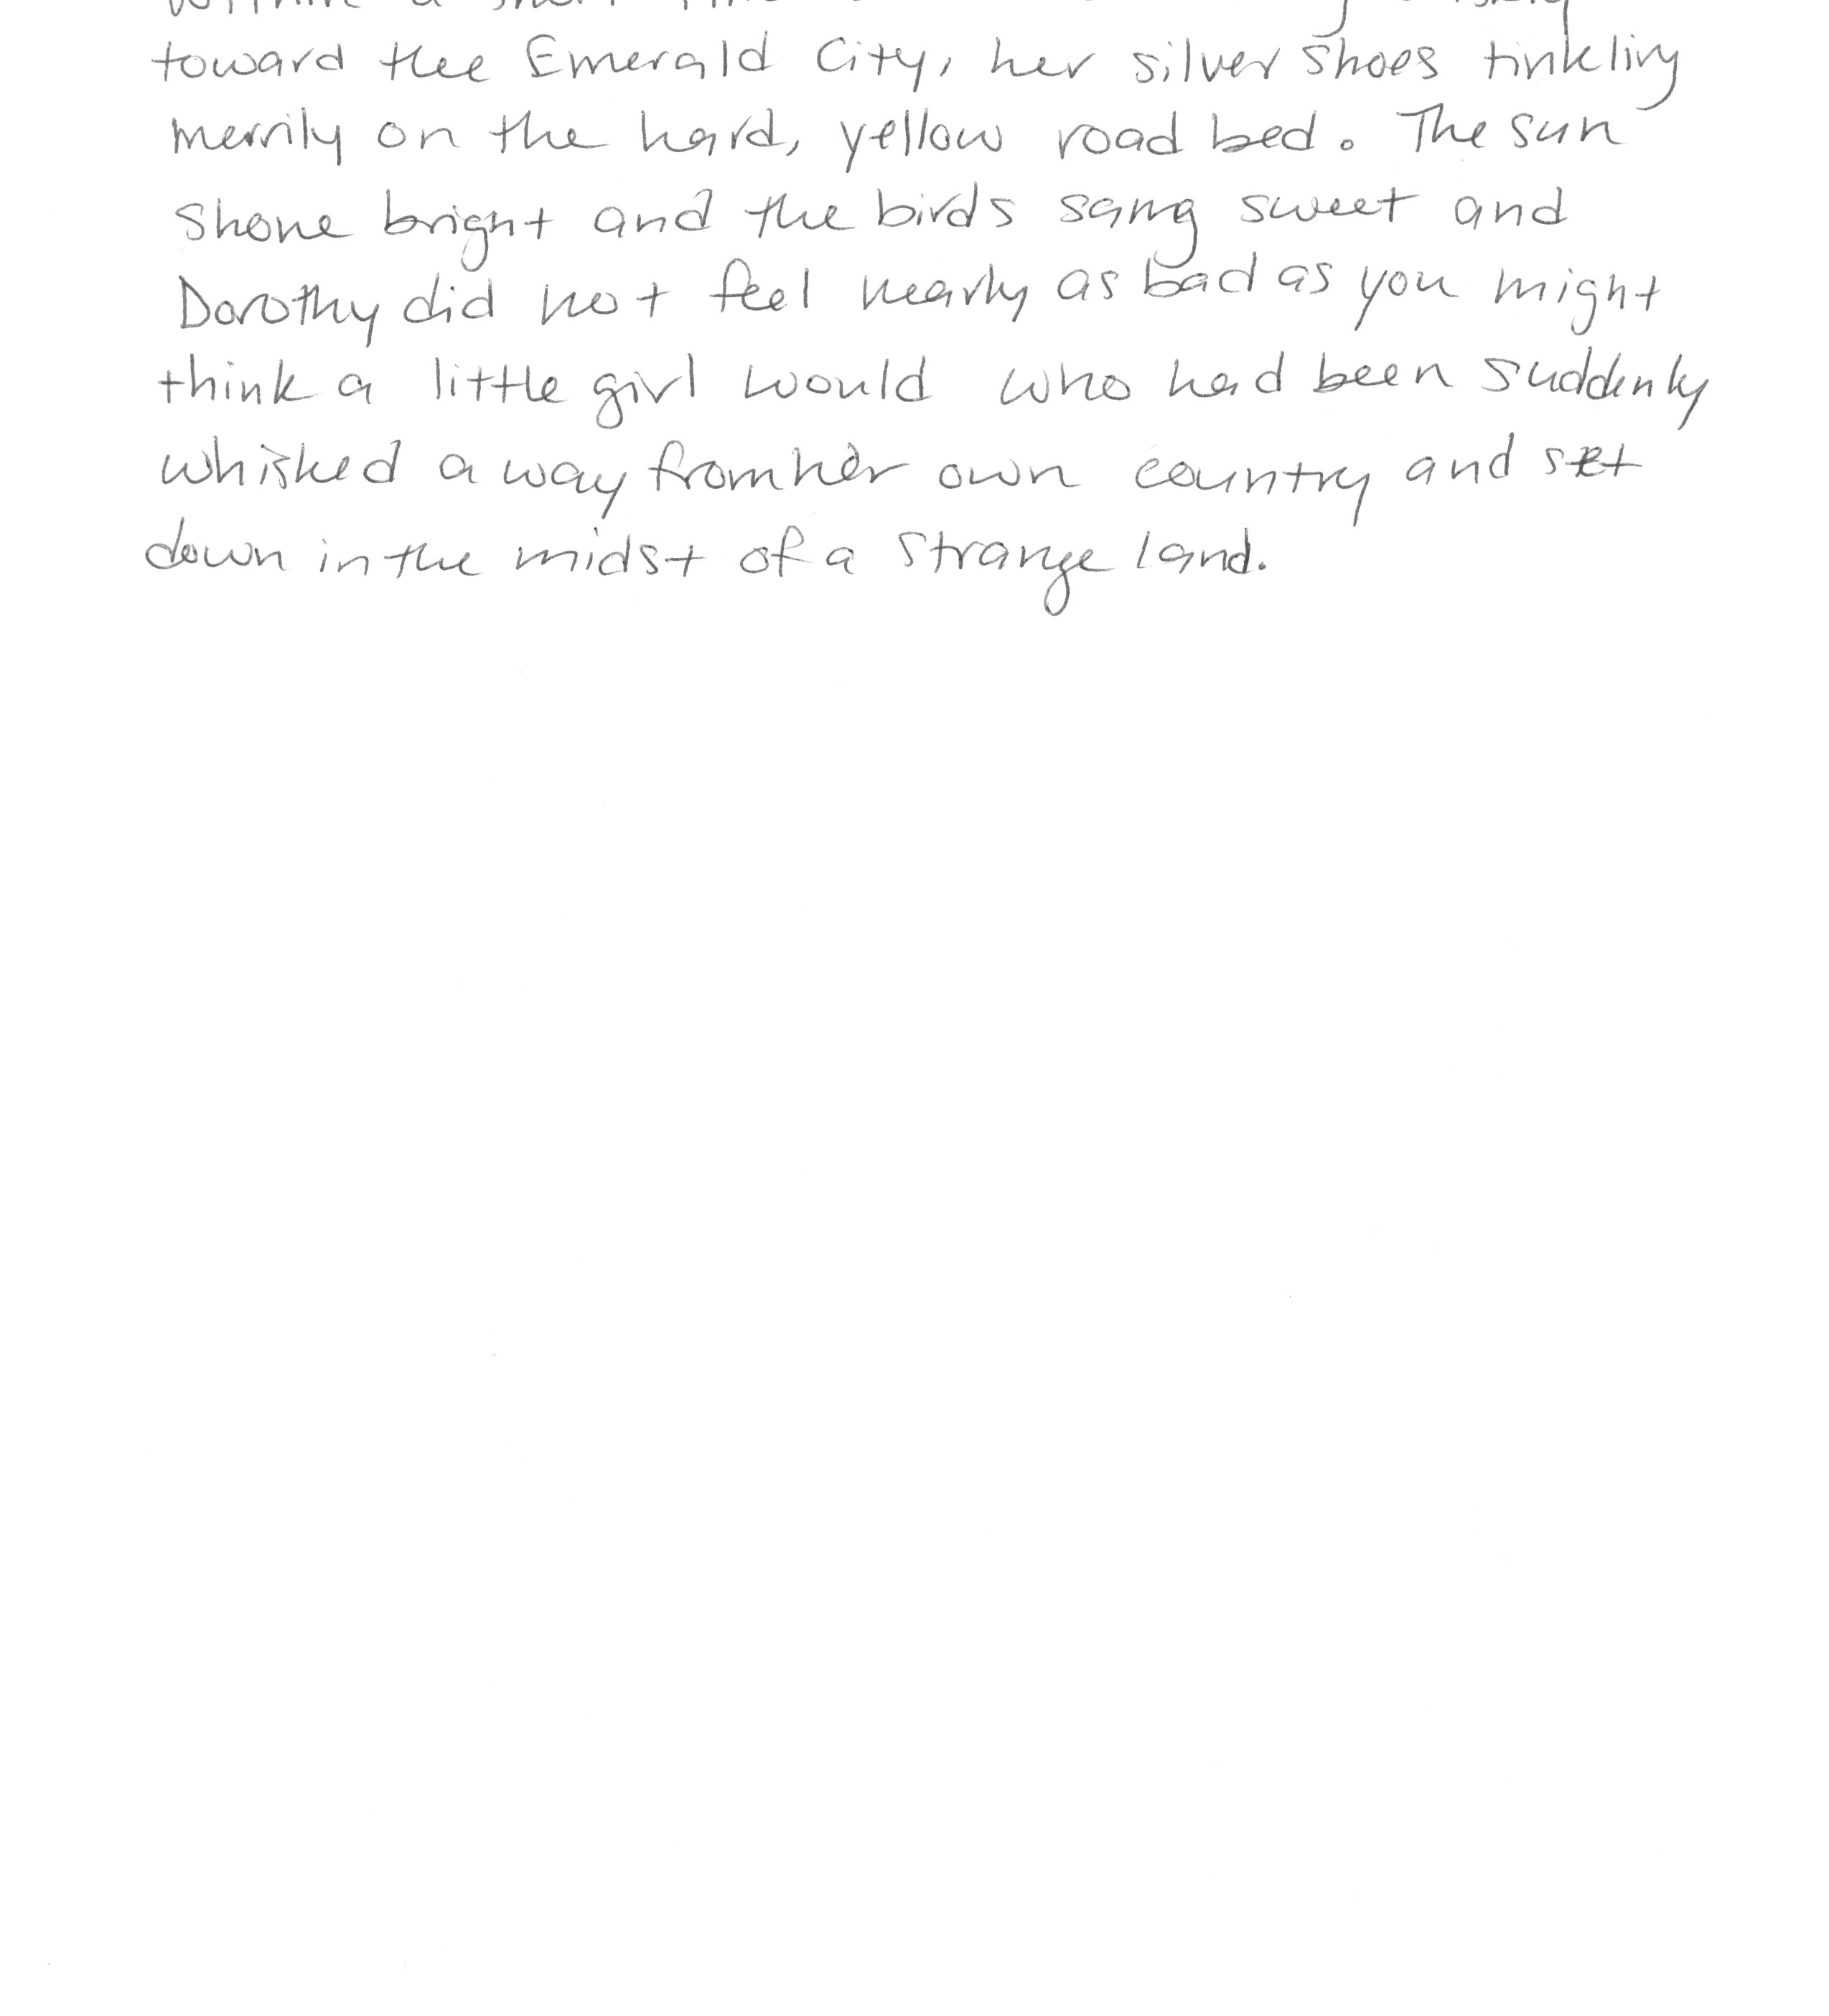 toward the Emerald City, her silver shoes tinkling
merrily on the hard, yellow road bed. The sun
shone bright and the birds sang sweet and
Dorothy did not feel nearly as bad as you might
think a little girl would who had been suddenly
whisked away from her own country and set
down in the midst of a strange land.